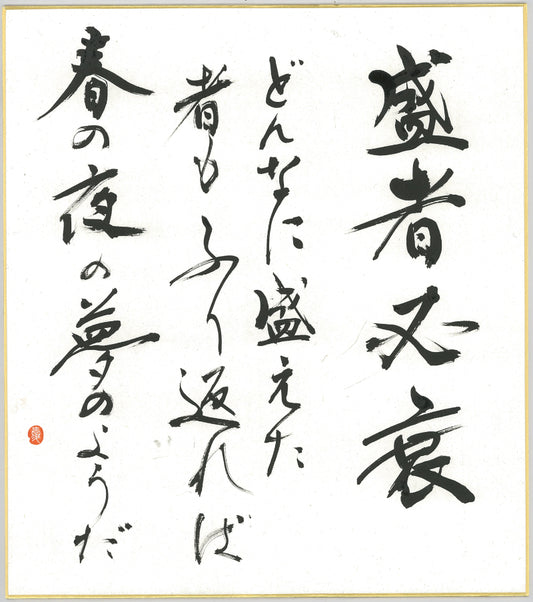 盛者必衰
どんなに盛えた
者もふり返れば
春の夜の夢のようだ